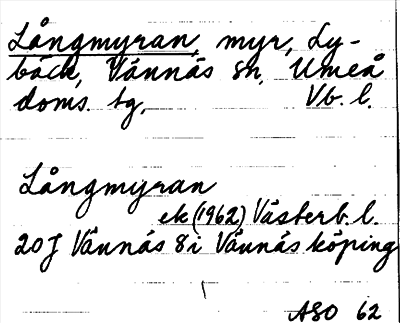 Långmyran, myr, Ly-
bäck, Vännäs sn, Umeå
doms. tg, Vb. l.
Långmyran
ek (1962) Västerb. l.
20 J Vännäs 8 i Vännäs köping
ASO 62